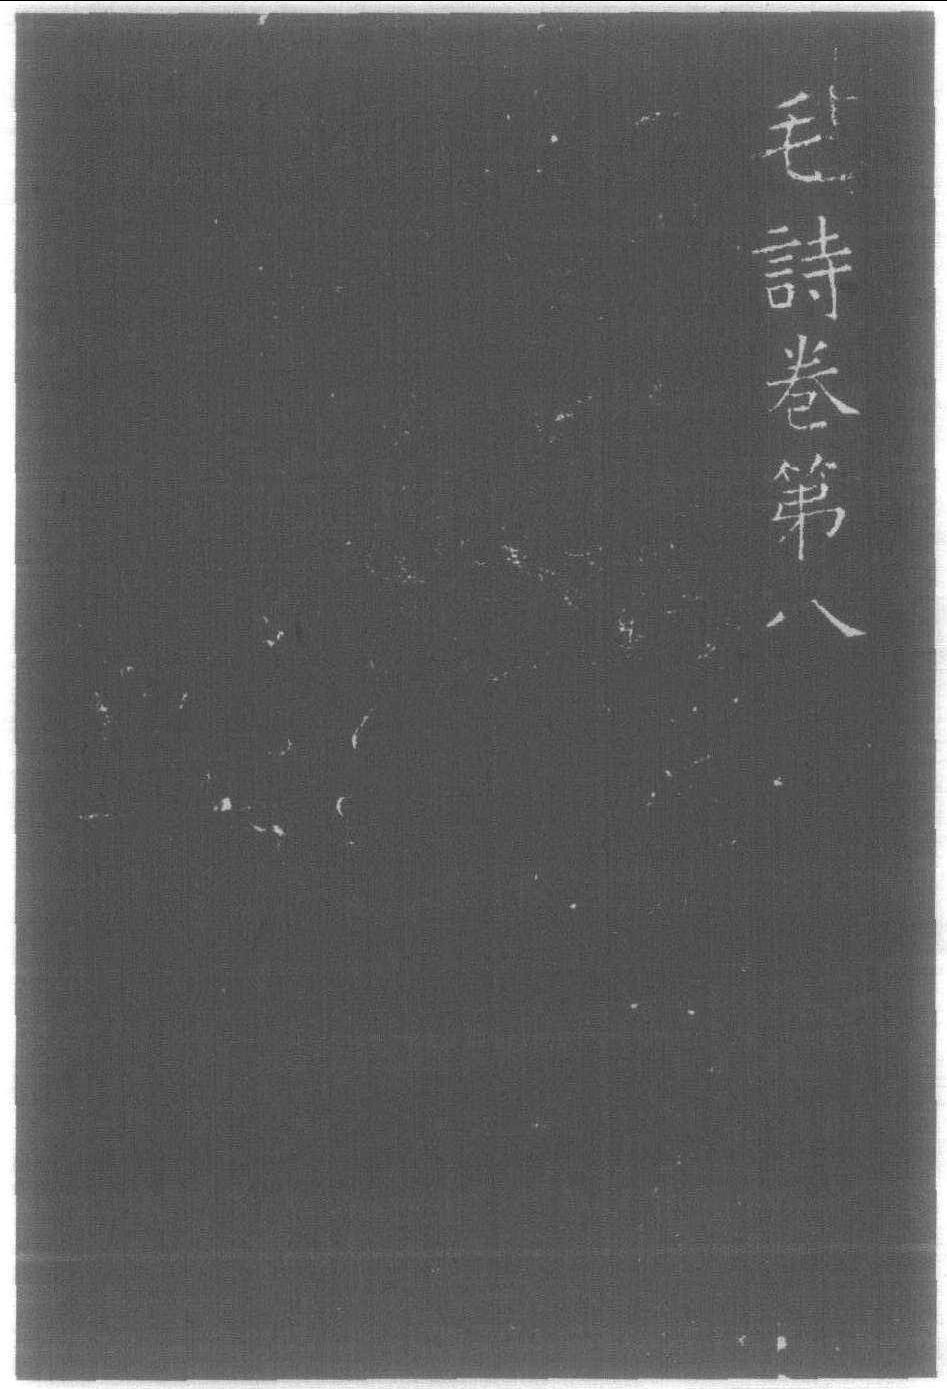 毛詩卷第八